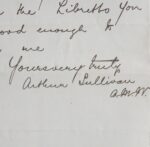 the Libretto you
good enough to
me
Yours very truly
Arthur Sullivan